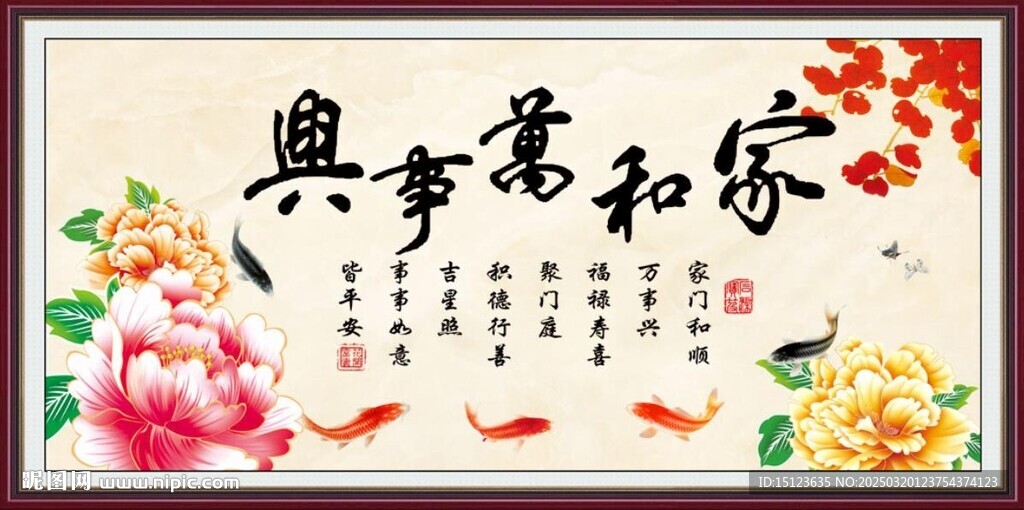 家和萬事興
家门和顺
万事兴
福禄寿喜
聚门庭
积德行善
吉星照
事事如意
皆平安
昵图网 www.nipic.com
ID:15123635 NO:20250320123754374123